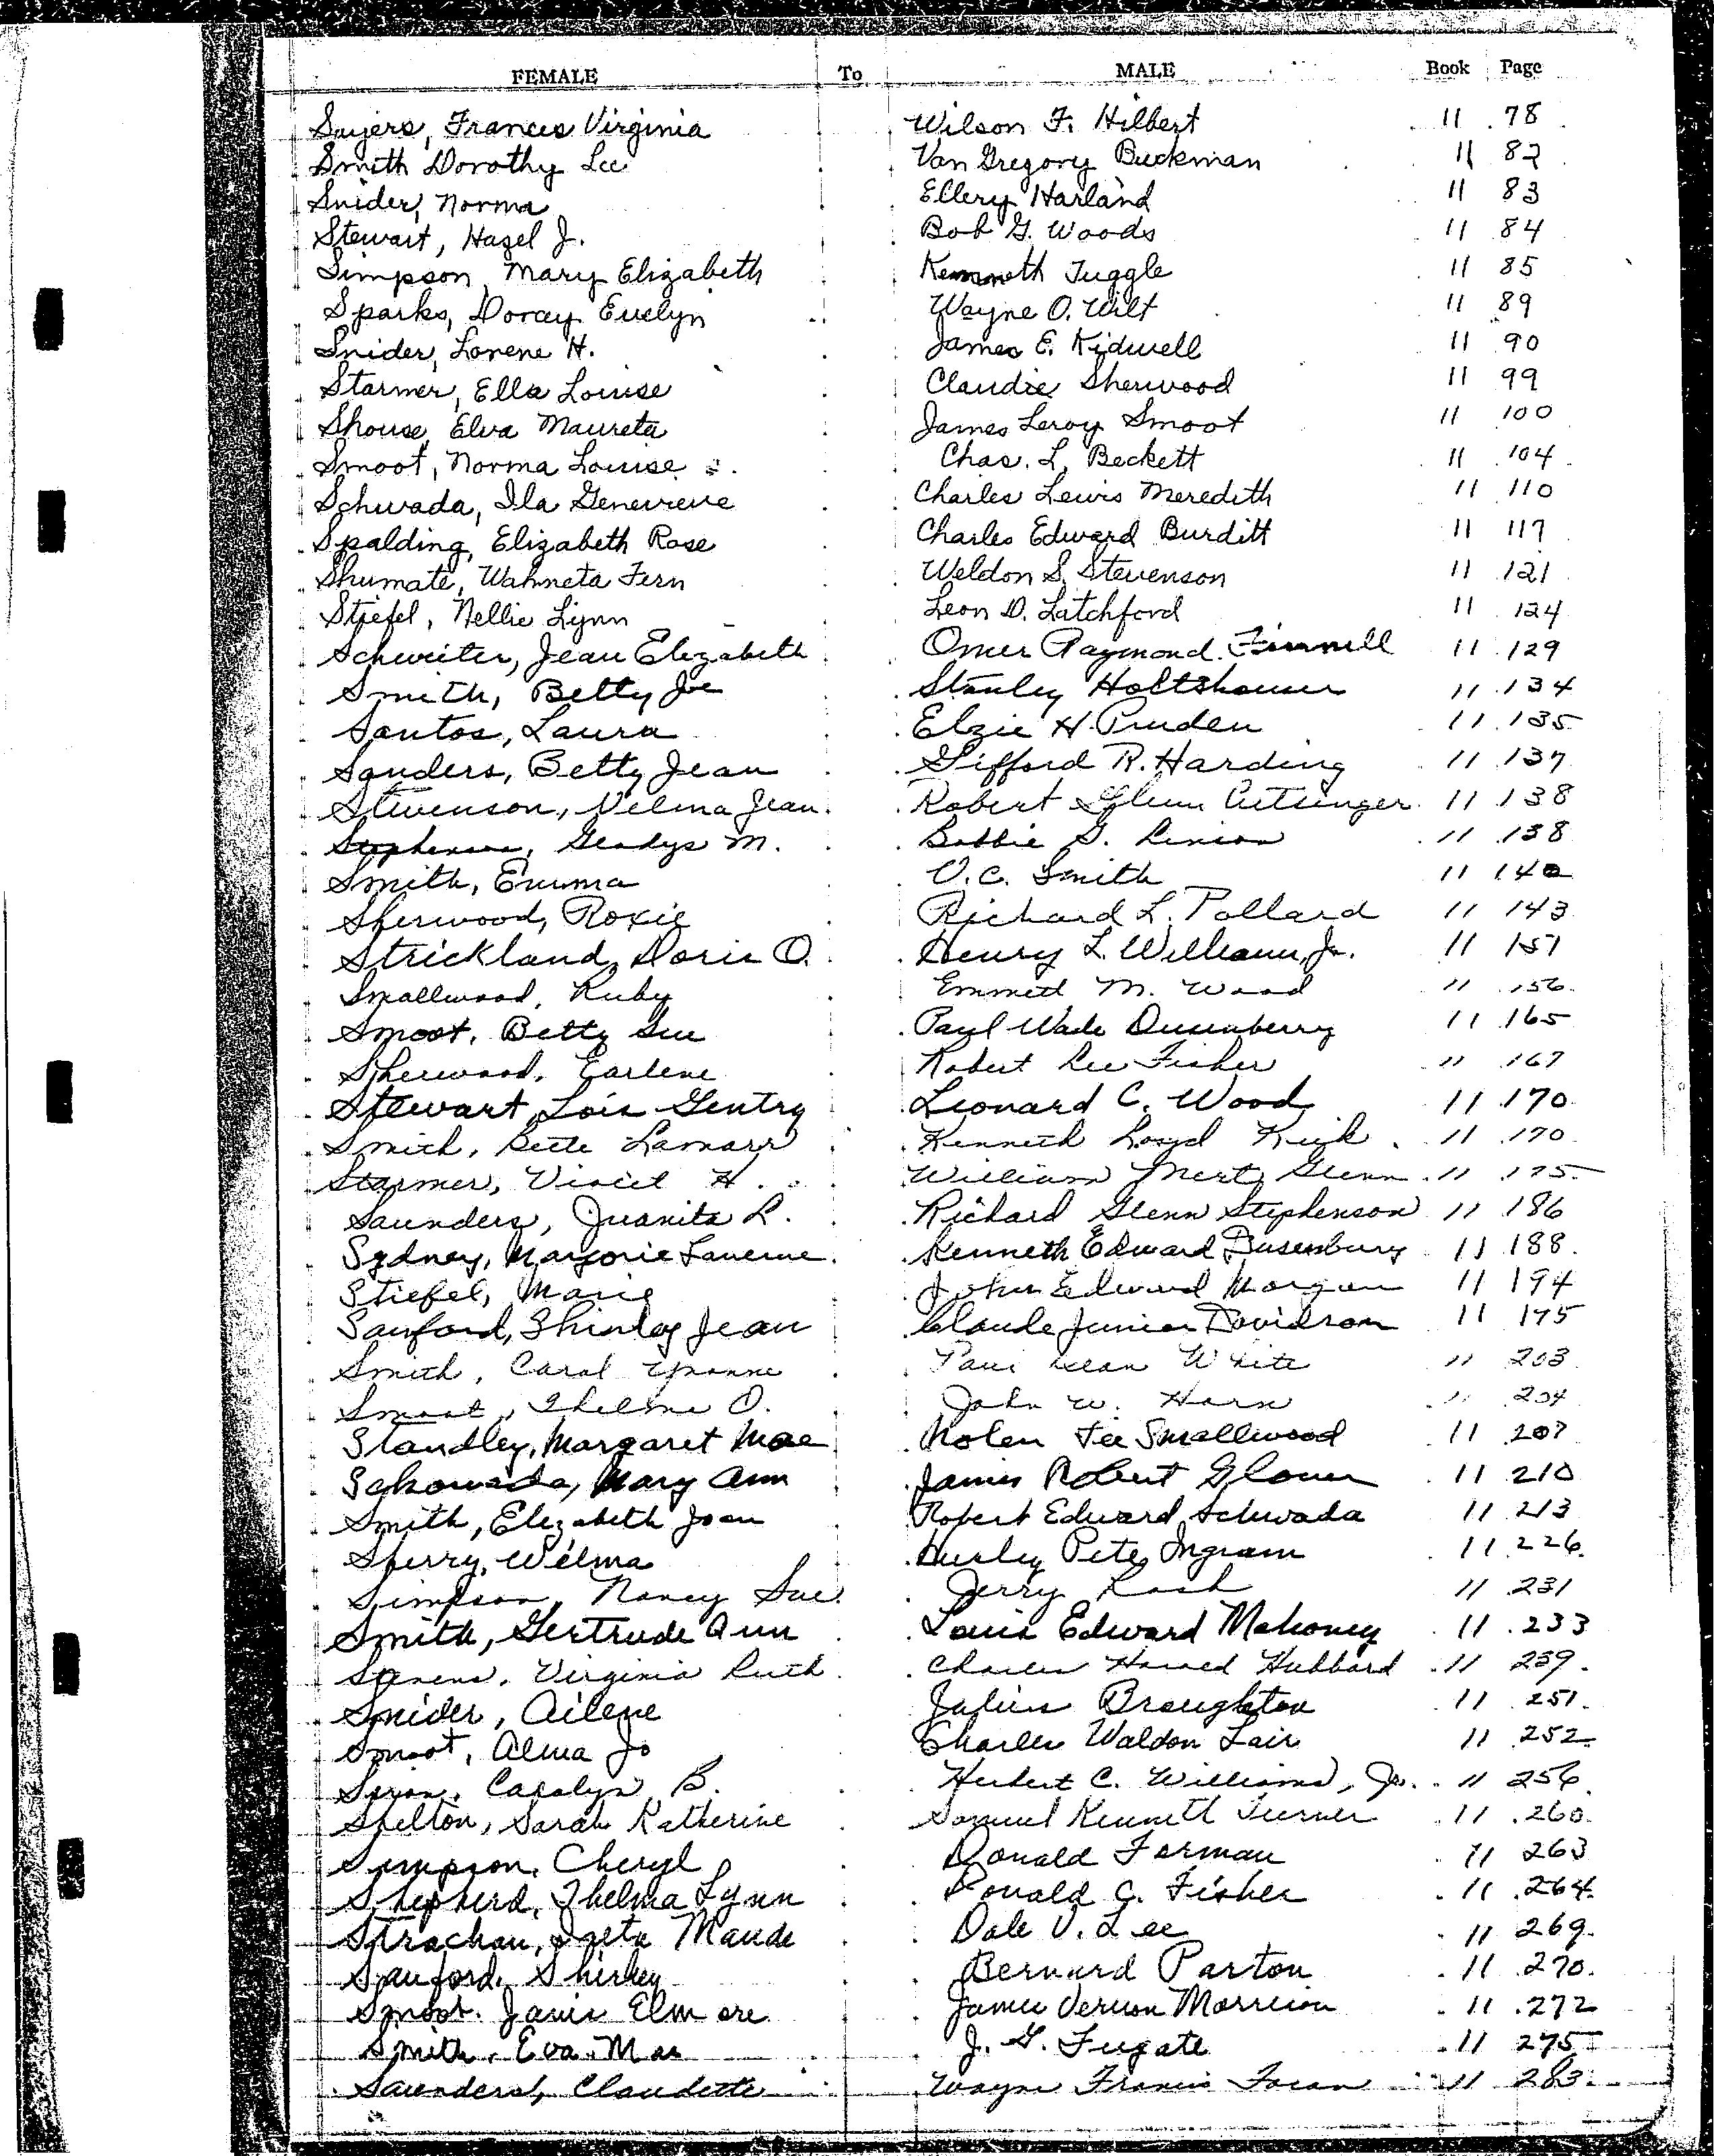 FEMALE To MALE Book Page
Sayers, Frances Virginia Wilson F. Hilbert 11 78
Smith Dorothy Lee Van Gregory Buckman 11 82
Snider, Norma Ellery Harland 11 83
Stewart, Hazel J. Bob G. Woods 11 84
Simpson, Mary Elizabeth Kenneth Tuggle 11 85
Sparks, Dorcey Evelyn Wayne O. Wilt 11 89
Snider, Lorene H. James E. Kidwell 11 90
Starmer, Ella Louise Claudie Sherwood 11 99
Shouse, Elva Maureta James Leroy Smoot 11 100
Smoot, Norma Louise Chas. L. Beckett 11 104
Schwada, Ila Genevieve Charles Lewis Meredith 11 110
Spalding, Elizabeth Rose Charles Edward Burditt 11 117
Shumate, Wahneta Fern Weldon S. Stevenson 11 121
Stiefel, Nellie Lynn Leon D. Latchford 11 124
Schweiter, Jean Elizabeth Omer Raymond Finnell 11 129
Smith, Betty Joe Stanley Holtshouser 11 134
Santos, Laura Elzie H. Pruden 11 135
Sanders, Betty Jean Gifford R. Harding 11 137
Stevenson, Velma Jean Robert Glenn Cutsinger 11 138
Stephenson, Gladys M. Bobbie G. 11 138
Smith, Emma V. C. Smith 11 140
Sherwood, Roxie Richard L. Pollard 11 143
Strickland, Doris O. Henry L. Williams, Jr. 11 151
Smallwood, Ruby Emmett M. Wood 11 156
Smoot, Betty Sue Paul Wade Dusenberry 11 165
Sherwood, Earlene Robert Lee Fisher 11 167
Stewart, Lois Gentry Leonard C. Wood 11 170
Smith, Bette Lamarr Kenneth Loyd 11 170
Starmer, H. William Mertz Glenn 11 175
Saunders, Juanita L. Richard Glenn Stephenson 11 186
Sydney, Marjorie Laverne Kenneth Edward Dusenbury 11 188
Stiefel, Marie John Edward Morgan 11 194
Sanford, Shirley Jean Claude Junior Davidson 11 195
Smith, Carol Yvonne Paul Dean White 11 203
Smoot, Thelma O. John W. Horn 11 204
Standley, Margaret Mae Nolen Lee Smallwood 11 207
Schowada, Mary Ann James Robert Glover 11 210
Smith, Elizabeth Joan Robert Edward Schwada 11 213
Sperry, Wilma Hurley Pete Ingram 11 226
Simpson, Nancy Sue Jerry 11 231
Smith, Gertrude Ann Louis Edward Mahoney 11 233
Stevens, Virginia Ruth Charles Harold Hubbard 11 239
Snider, Ailene Julius Broughton 11 251
Smoot, Alma Jo Charles Waldon Lair 11 252
Carolyn B. Herbert C. Williams, Jr. 11 256
Shelton, Sarah Katherine Samuel Kenneth Turner 11 260
Simpson, Cheryl Donald Forman 11 263
Shepherd, Thelma Lynn Donald G. Fisher 11 264
Strachan, Maude Dale V. Lee 11 269
Sanford, Shirley Bernard Parton 11 270
Smoot, Janis Elmore James Vernon Morrison 11 272
Smith, Eva Mae J. G. Fugate 11 275
Saunders, Claudette Wayne Francis Foran 11 283